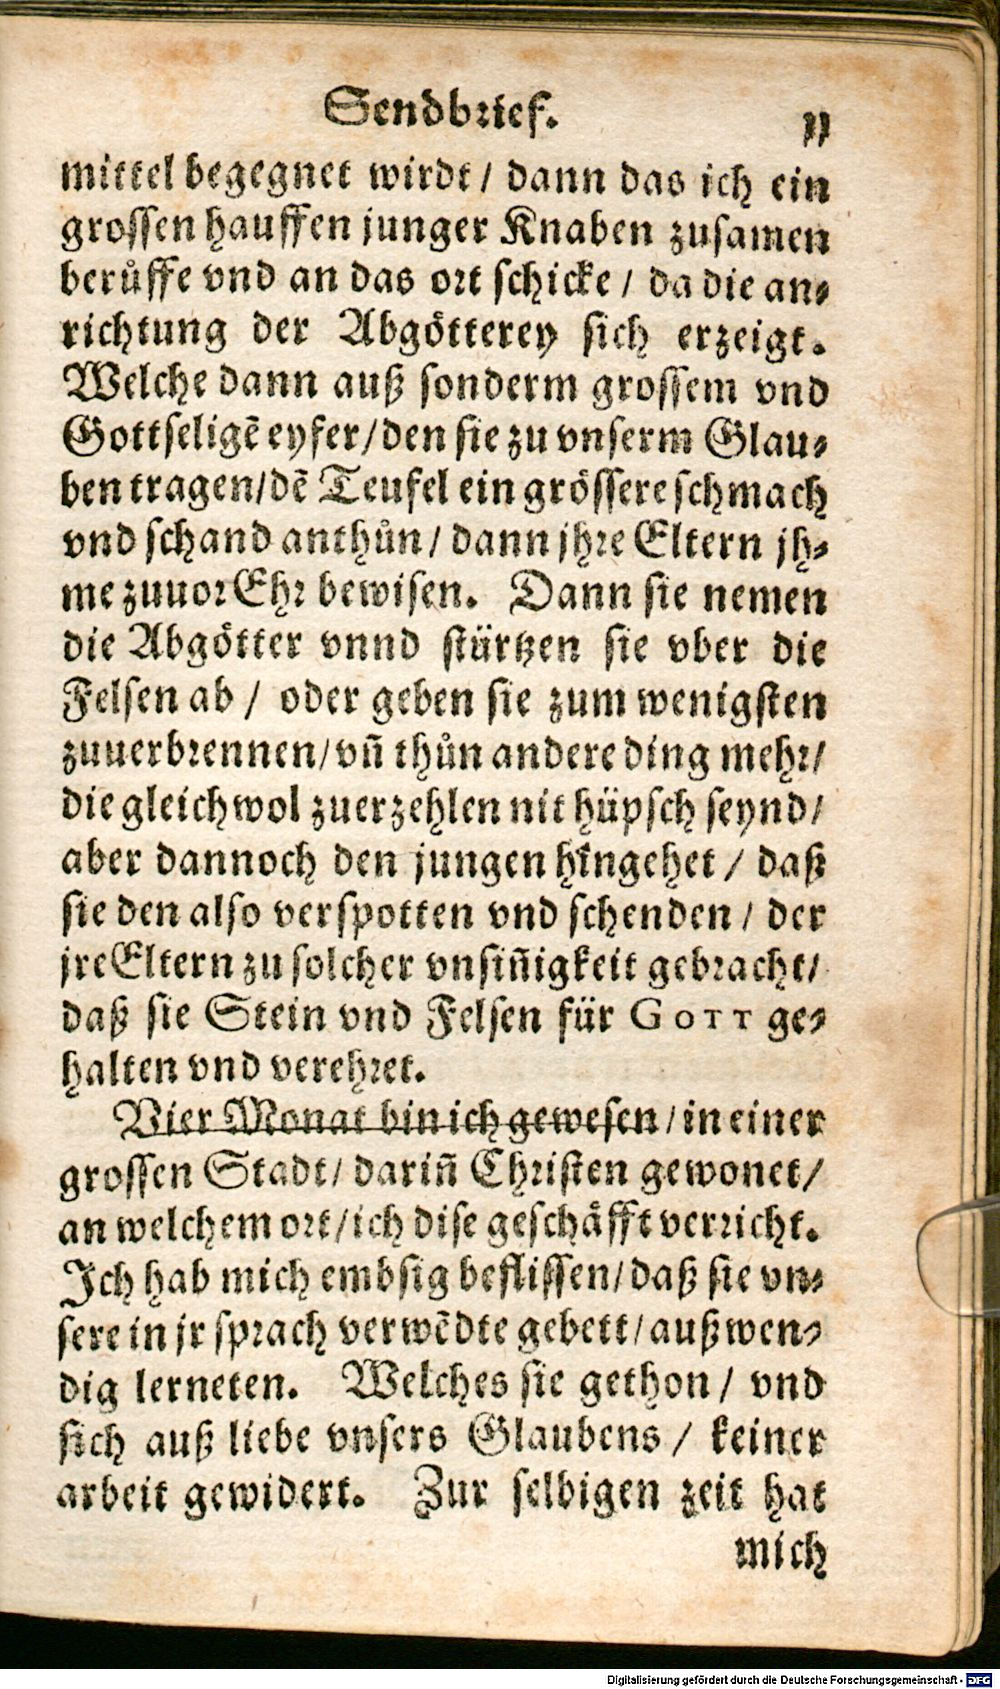 Sendbrief.
11
mittel begegnet wirdt / dann das ich ein
grossen hauffen junger Knaben zusamen
berůffe vnd an das ort schicke / da die an-
richtung der Abgötterey sich erzeigt.
Welche dann auß sonderm grossem vnd
Gottseligē eyfer / den sie zu vnserm Glau-
ben tragen / dē Teufel ein grössere schmach
vnd schand anthůn / dann jhre Eltern jh-
me zuuor Ehr bewisen. Dann sie nemen
die Abgötter vnnd stürtzen sie vber die
Felsen ab / oder geben sie zum wenigsten
zuuerbrennen / vñ thůn andere ding mehr /
die gleichwol zuerzehlen nit hüpsch seynd /
aber dannoch den jungen hingehet / daß
sie den also verspotten vnd schenden / der
jre Eltern zu solcher vnsiñigkeit gebracht /
daß sie Stein vnd Felsen für GOTT ge-
halten vnd verehret.
Vier Monat bin ich gewesen / in einer
grossen Stadt / dariñ Christen gewonet /
an welchem ort / ich dise geschäfft verricht.
Ich hab mich embsig beflissen / daß sie vn-
sere in jr sprach verwēdte gebett / außwen-
dig lerneten. Welches sie gethon / vnd
sich auß liebe vnsers Glaubens / keiner
arbeit gewidert. Zur selbigen zeit hat
mich
Digitalisierung gefördert durch die Deutsche Forschungsgemeinschaft - DFG